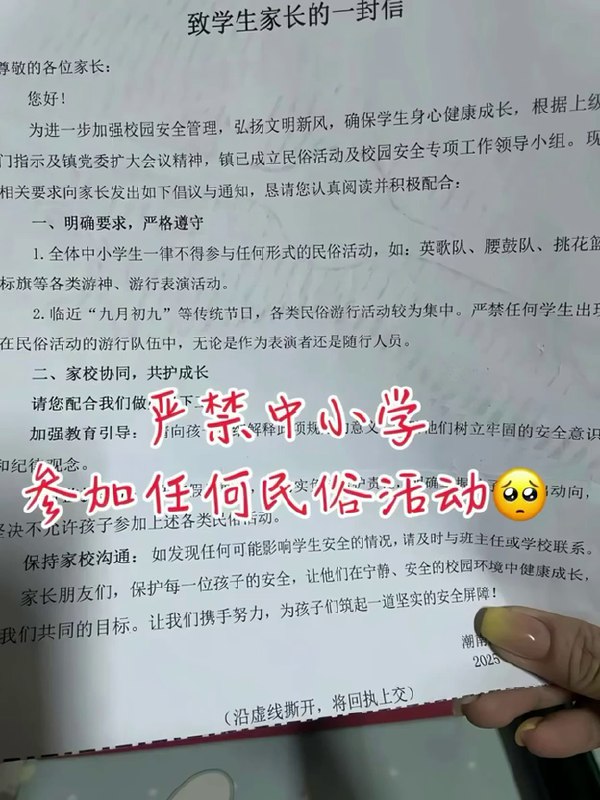 致学生家长的一封信
尊敬的各位家长：
您好！
为进一步加强校园安全管理，弘扬文明新风，确保学生身心健康成长，根据上级
门指示及镇党委扩大会议精神，镇已成立民俗活动及校园安全专项工作领导小组。现
相关要求向家长发出如下倡议与通知，恳请您认真阅读并积极配合：
一、明确要求，严格遵守
1. 全体中小学生一律不得参与任何形式的民俗活动，如：英歌队、腰鼓队、挑花篮
标旗等各类游神、游行表演活动。
2. 临近“九月初九”等传统节日，各类民俗游行活动较为集中。严禁任何学生出现
在民俗活动的游行队伍中，无论是作为表演者还是随行人员。
二、家校协同，共护成长
请您配合我们做
严禁中小学
加强教育引导：向孩 解释 规 的意义 他们树立牢固的安全意识
和纪律观念。
参加任何民俗活动🥺
出动向，
坚决不允许孩子参加上述各类民俗活动。
保持家校沟通：如发现任何可能影响学生安全的情况，请及时与班主任或学校联系。
家长朋友们，保护每一位孩子的安全，让他们在宁静、安全的校园环境中健康成长，
我们共同的目标。让我们携手努力，为孩子们筑起一道坚实的安全屏障！
潮南
2025
（沿虚线撕开，将回执上交）